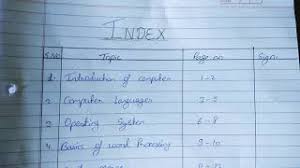 INDEX
S.No Topic Page no Sign.
1. Introduction of computer 1-2
2. Computer languages 3-5
3. Operating System 6-8
4. Basics of word Processing 9-10